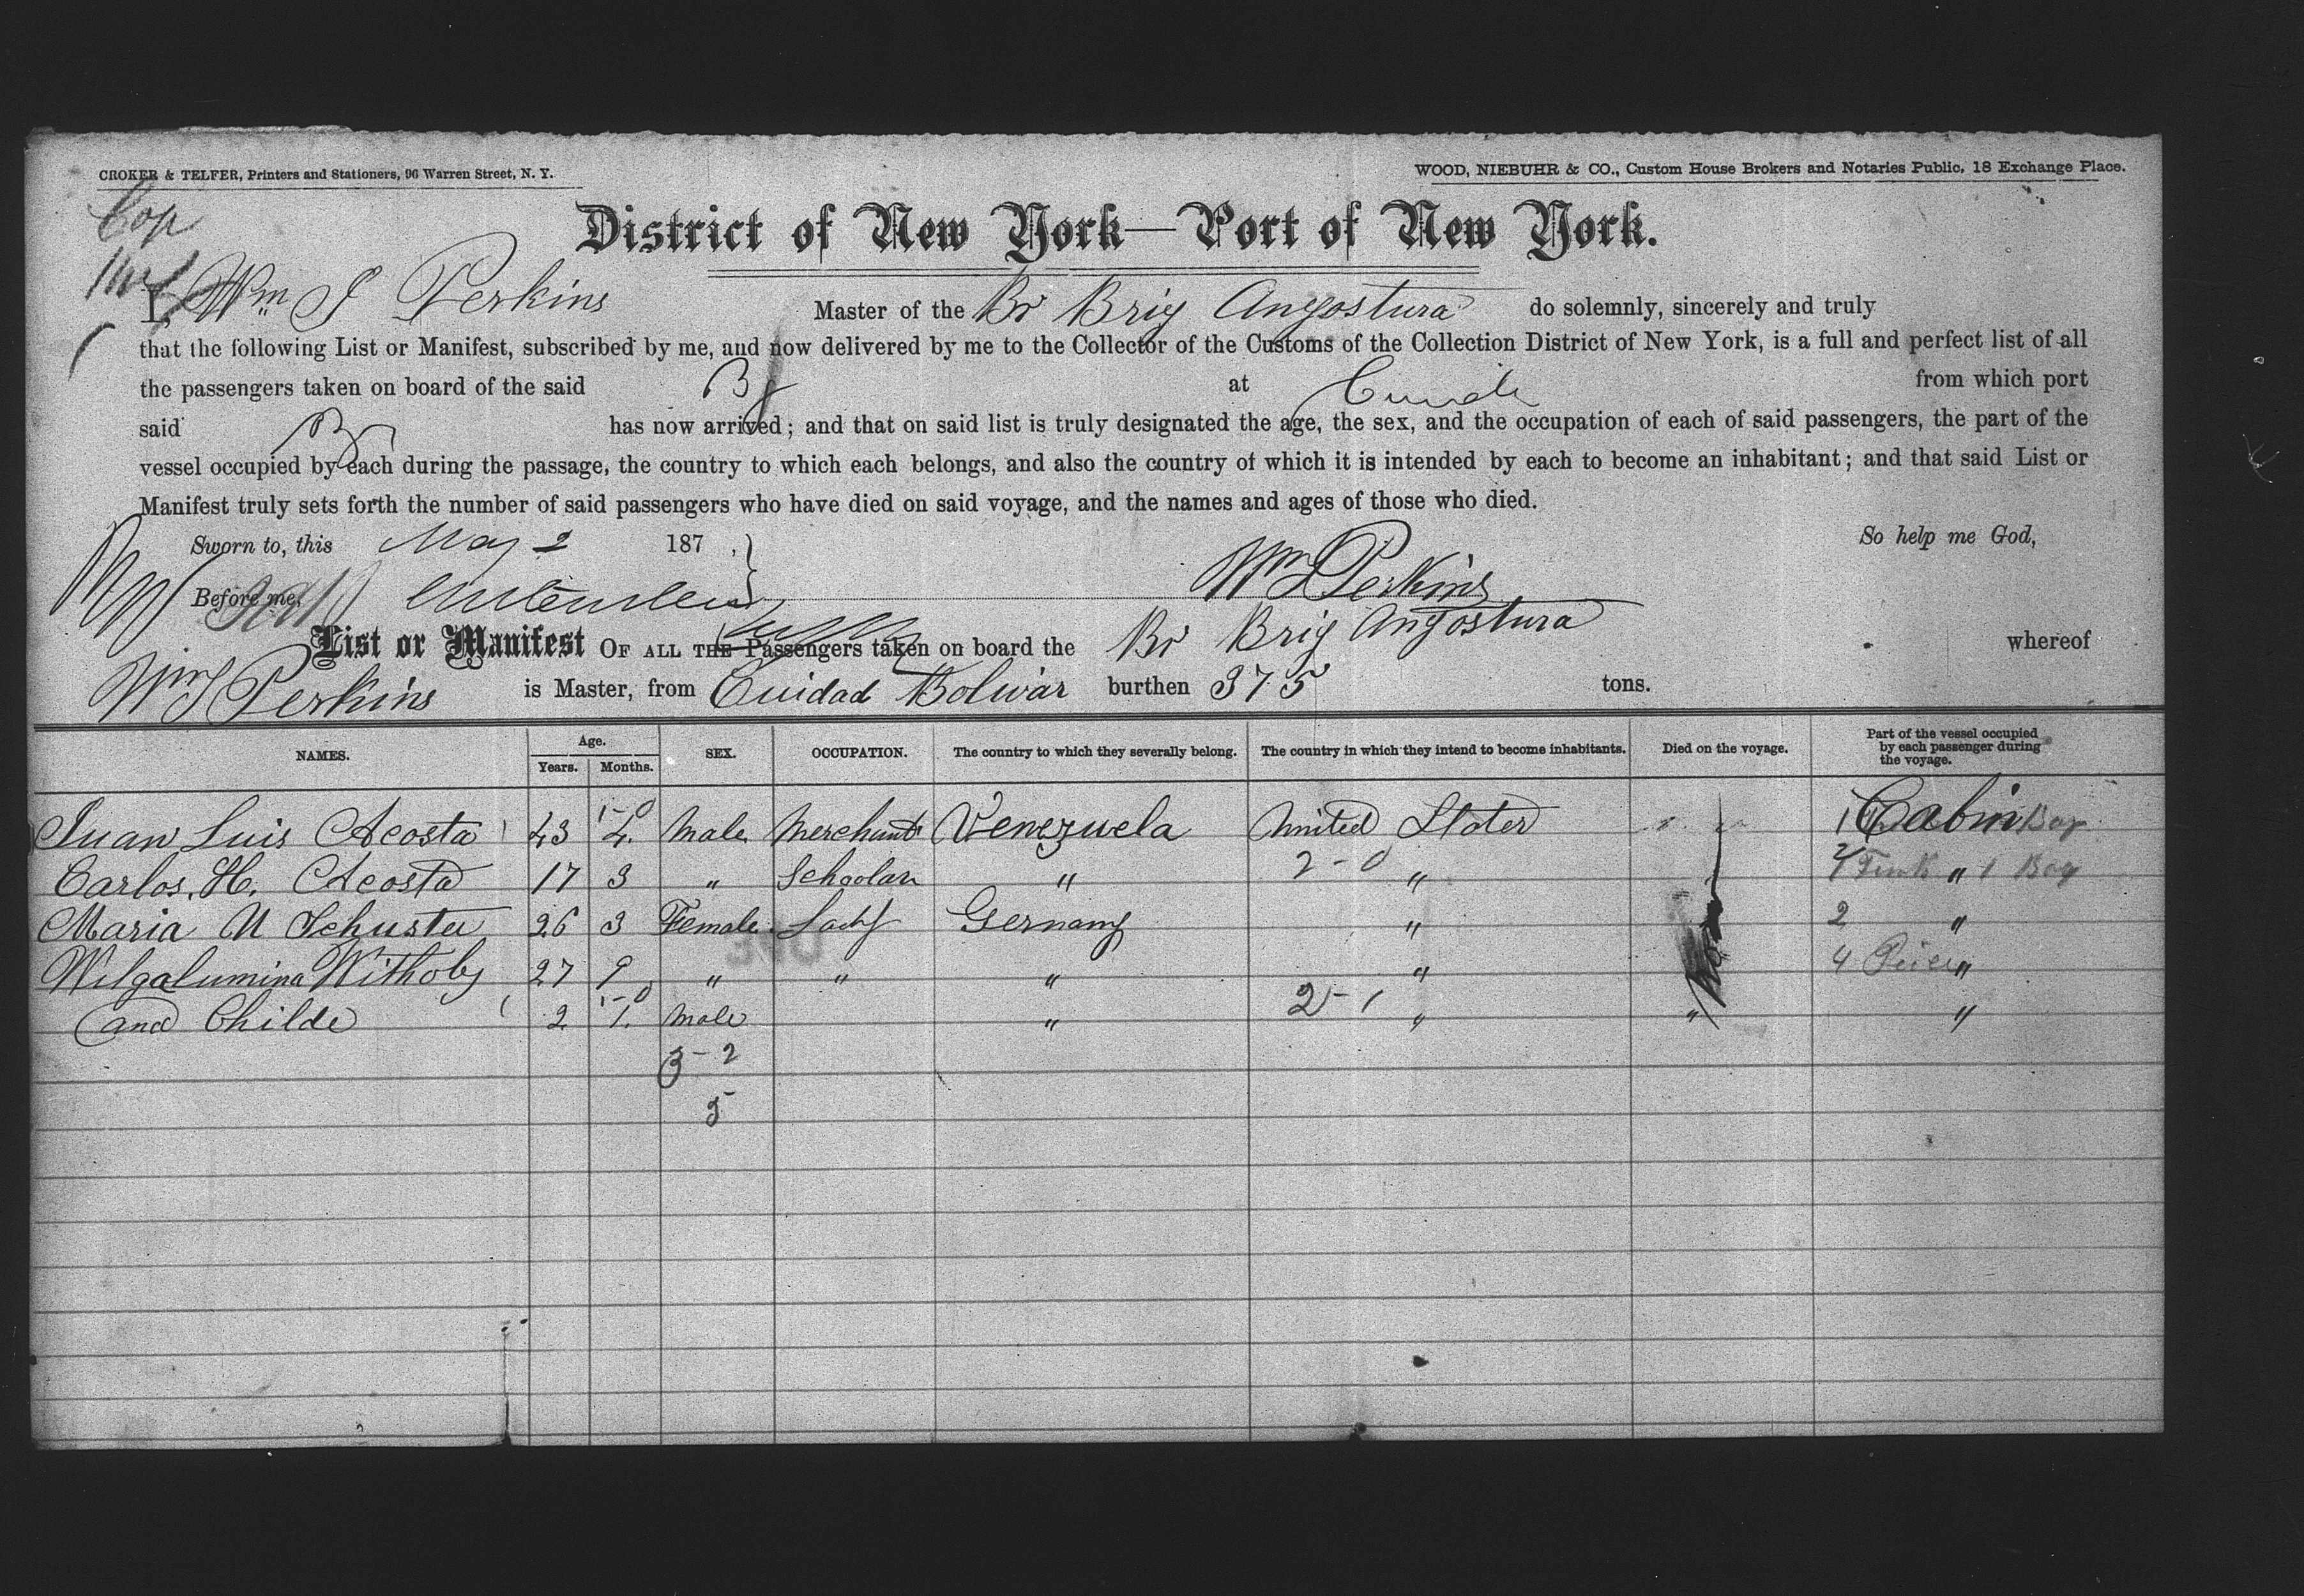 CROKER & TELFER, Printers and Stationers, 96 Warren Street, N. Y.
WOOD, NIEBUHR & CO., Custom House Brokers and Notaries Public, 18 Exchange Place.
Cop
District of New York—Port of New York.
I, Wm J Perkins Master of the Br Brig Angostura do solemnly, sincerely and truly
that the following List or Manifest, subscribed by me, and now delivered by me to the Collector of the Customs of the Collection District of New York, is a full and perfect list of all
the passengers taken on board of the said Bg at from which port
said has now arrived; and that on said list is truly designated the age, the sex, and the occupation of each of said passengers, the part of the
vessel occupied by each during the passage, the country to which each belongs, and also the country of which it is intended by each to become an inhabitant; and that said List or
Manifest truly sets forth the number of said passengers who have died on said voyage, and the names and ages of those who died.
Sworn to, this May 2 187 , So help me God,
Before me, Wm J Perkins
List or Manifest OF ALL THE Passengers taken on board the Br Brig Angostura whereof
Wm J Perkins is Master, from Cuidad Bolivar burthen 375 tons.
NAMES. Age. Years. Months. SEX. OCCUPATION. The country to which they severally belong. The country in which they intend to become inhabitants. Died on the voyage. Part of the vessel occupied by each passenger during the voyage.
1-0
Juan Luis Acosta 43 4. Male Merchant Venezuela United States 1 Cabin Bag
2-0
Carlos. H. Acosta 17 3 " Scholar " " " 1 Bag
Maria N Schuster 26 3 Female Lady Germany " 2 "
Wilgalumina Withoby 27 9 " " " " 4 "
1-0 2-1
and Childe 2 1. Male " " " "
3-2
5